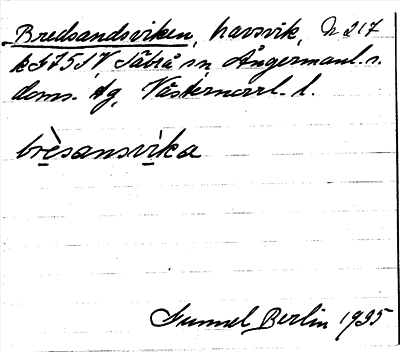 Bredsandsviken, havsvik, N 217
k F75SV Säbrå sn Ångermanl. s.
doms. dg, Västernorrl. l.
brèsansvika
Gunnel Berlin 1935